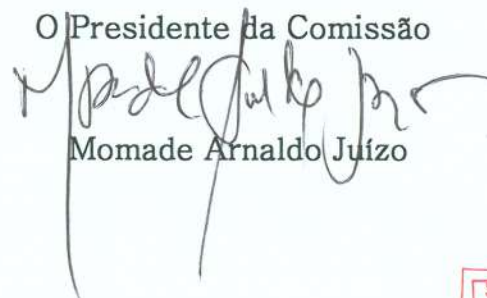 O Presidente da Comissão
Momade Arnaldo Juízo